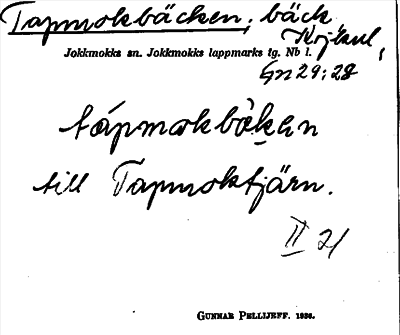 Tapmokbäcken, bäck
Jokkmokks sn. Jokkmokks lappmarks tg. Nb l.
Gn 29:28
tápmokbäkən
till Tapmoktjärn.
II 21
GUNNAR PELLIJEFF. 1936.